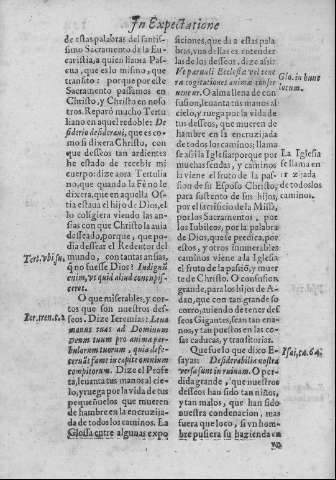 In Expectatione
de estas palabras del santis-
simo Sacramento de la Eu-
caristia, a quien llama Pas-
cua, que es lo mismo, que
transito: porque por este
Sacramento passamos en
Christo, y Christo en noso
tros. Reparò mucho Tertu
liano en aquel redobles De
siderio desideraui, que es co-
mo si dixera Christo, con
que desseos tan ardientes
he estado de recebir mi
cuerpo: dize aora Tertulia
no, que quando la Fè no le
dixera, que en aquella Os-
tia estaua el hijo de Dios, el
lo coligiera viendo las an-
sias con que Christo la auia
desseado, porque, que po-
dia dessear el Redentor del
mundo, con tantas ansias,
q̃ no fuesse Dios? Indignũ
enim, vt quid aliud concupis-
ceret.
O que miserables, y cor-
tos que son nuestros des-
seos. Dize Jeremias: Leua
manus tuas ad Dominum
Deum tuum pro anima par-
bulorum tuorum, quia defe-
cerunt fame in capite omnium
compitorum. Dize el Profe
ta, leuanta tus manos al cie-
lo, y ruega por la vida de tus
pequeñuelos que mueren
de hambre en la encruzija-
da de todos los caminos. La
Glossa entre algunas expo
Tert. vbi su.
Ier. tren. c. 2
siciones, que dà a estas pala
bras, vna dellas es entender
las de los desseos, dize assi:
Ve paruuli Ecclesiæ vel tene
ra cogitationes animæ confer
uentur. O alma llena de con
fusion, leuanta tus manos al
cielo, y ruega por la vida de
tus desseos, que mueren de
hambre en la encruzijada
de todos los caminos; llama
se assi la Iglesia: porque por
muchas sendas, y caminos
la viene el fruto de la pas-
sion de su Esposo Christo,
para sustento de sus hijos,
por el sacrificio de la Missa,
por los Sacramentos, por
los Iubileos, por la palabra
de Dios, que le predica, por
estos, y otros innumerables
caminos viene a la Iglesia
el fruto de la passiõ, y muer
te de Christo. O confusion
grande, para los hijos de A-
dan, que con tan grande so
corro, auiendo de tener des
seos Gigantes, sean tan ena-
nos, y tan puestos en las co-
sas caducas, y transitorias.
Que fue lo que dixo E-
sayas: Desiderabilia nostra
versa sunt in ruinam. O per-
dida grande, que nuestros
desseos han sido tan niños,
y tan malos, que han sido
nuestra condenacion, mas
fuera que loco, si vn hom-
bre pusiera su hazienda en
Glo. in hunc
locum.
La Iglesia
se llama en
zijada
de todos los
caminos.
Isai. ca. 64.